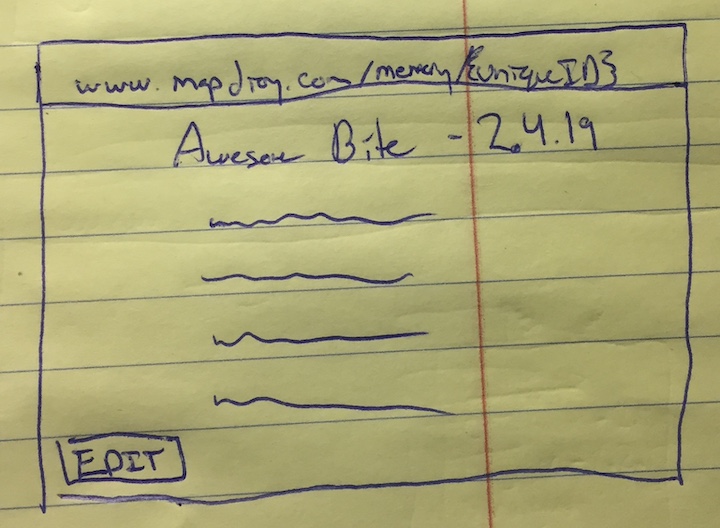 www.mapdiary.com/memory/{uniqueID}
Awesome Bite - 2.4.19
EDIT